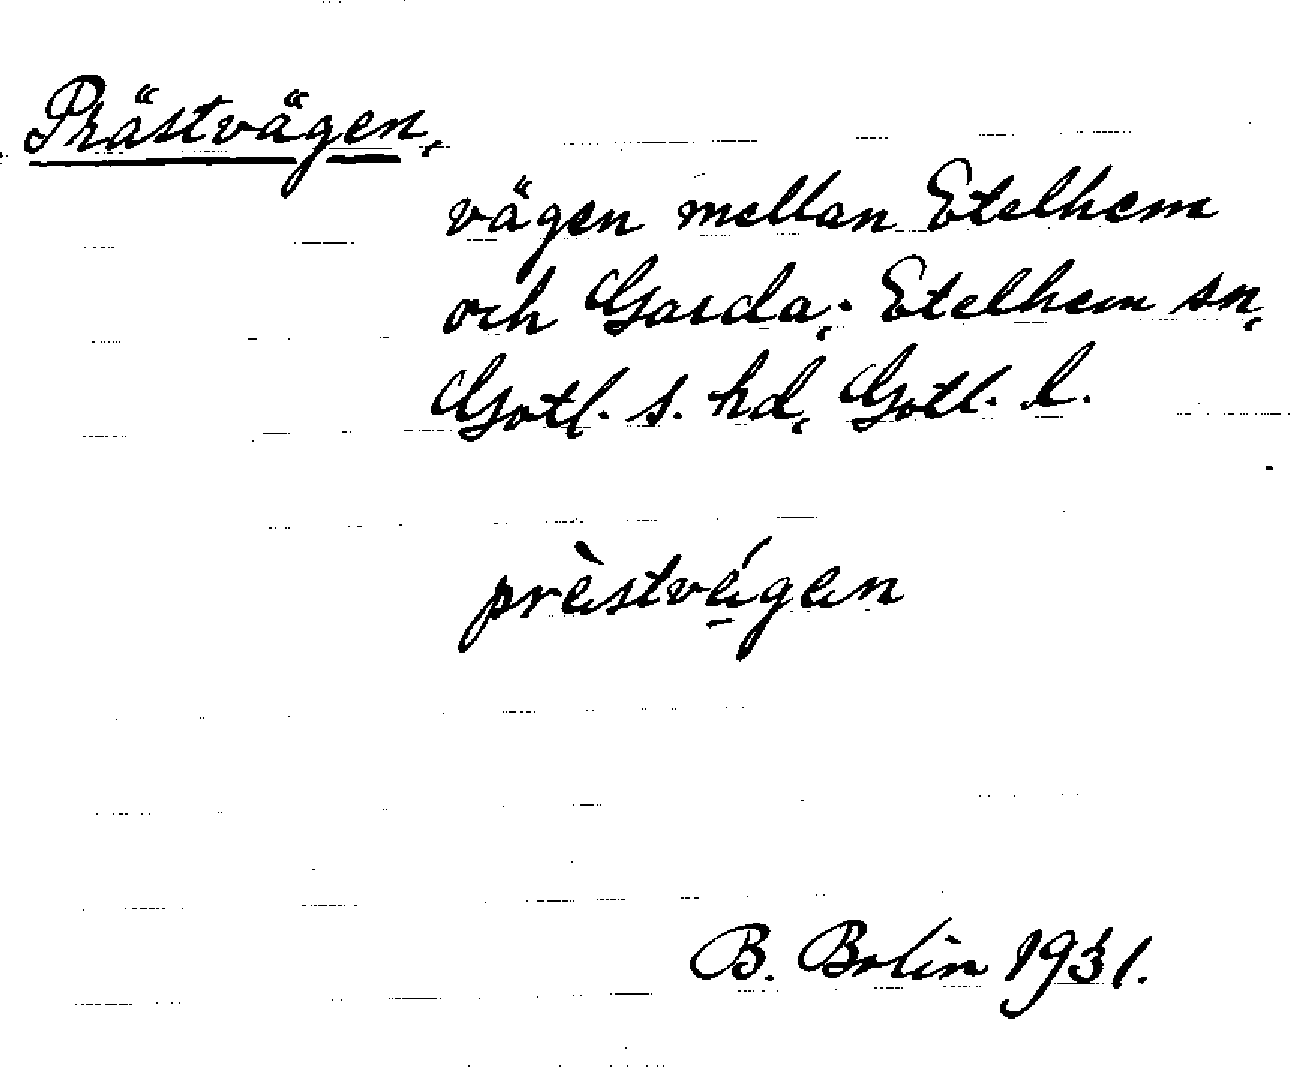 Prästvägen,
vägen mellan Etelhem
och Garda; Etelhem sn,
Gotl. s. hd, Gotl. l.
prèstvé̱gen
B. Bolin 1931.